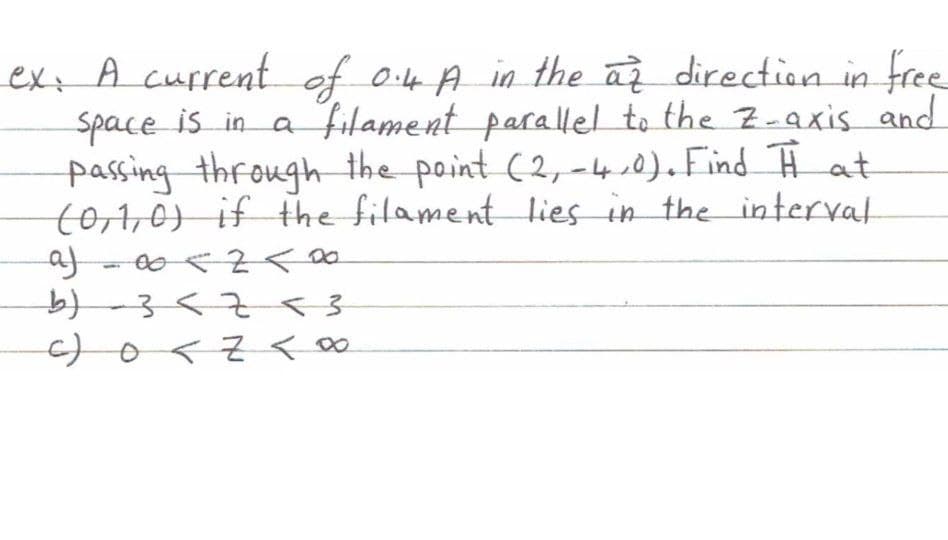 ex: A current of 0.4 A in the az direction in free
space is in a filament parallel to the z-axis and
passing through the point (2,-4,0). Find H at
(0,1,0) if the filament lies in the interval
a) -∞ < z < ∞
b) -3 < z < 3
c) 0 < z < ∞